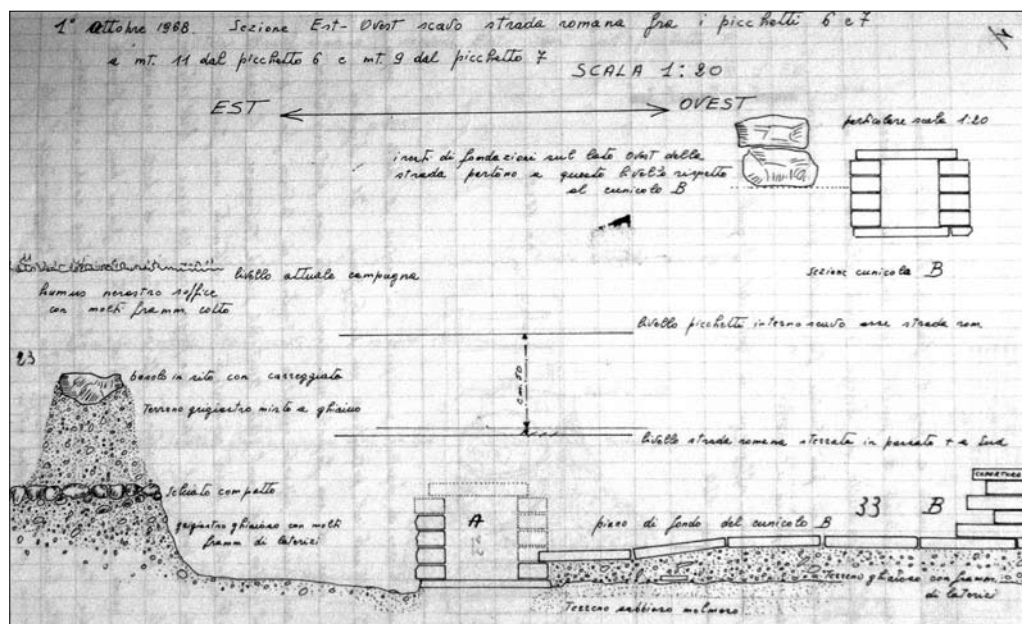 1° ottobre 1968. Sezione Est-Ovest scavo strada romana fra i picchetti 6 e 7
a mt. 11 dal picchetto 6 e mt. 9 dal picchetto 7
SCALA 1:20
EST
OVEST
particolare scala 1:20
inesti di fondazioni sul lato Ovest della
strada partono a questo livello rispetto
al cunicolo B
sezione cunicolo B
livello attuale campagna
humus nerastro soffice
con molti framm cotto
livello picchetti interno scavo asse strada rom
23
basolo in sito con carreggiata
Terreno grigiastro misto a ghiaino
livello strada romana sterrata in passato + a Sud
Selciato compatto
grigiastro ghiaioso con molti
framm di laterizi
A
piano di fondo del cunicolo B
33
B
COPERTURA
Terreno ghiaioso con framm
di laterizi
Terreno sabbioso melmoso